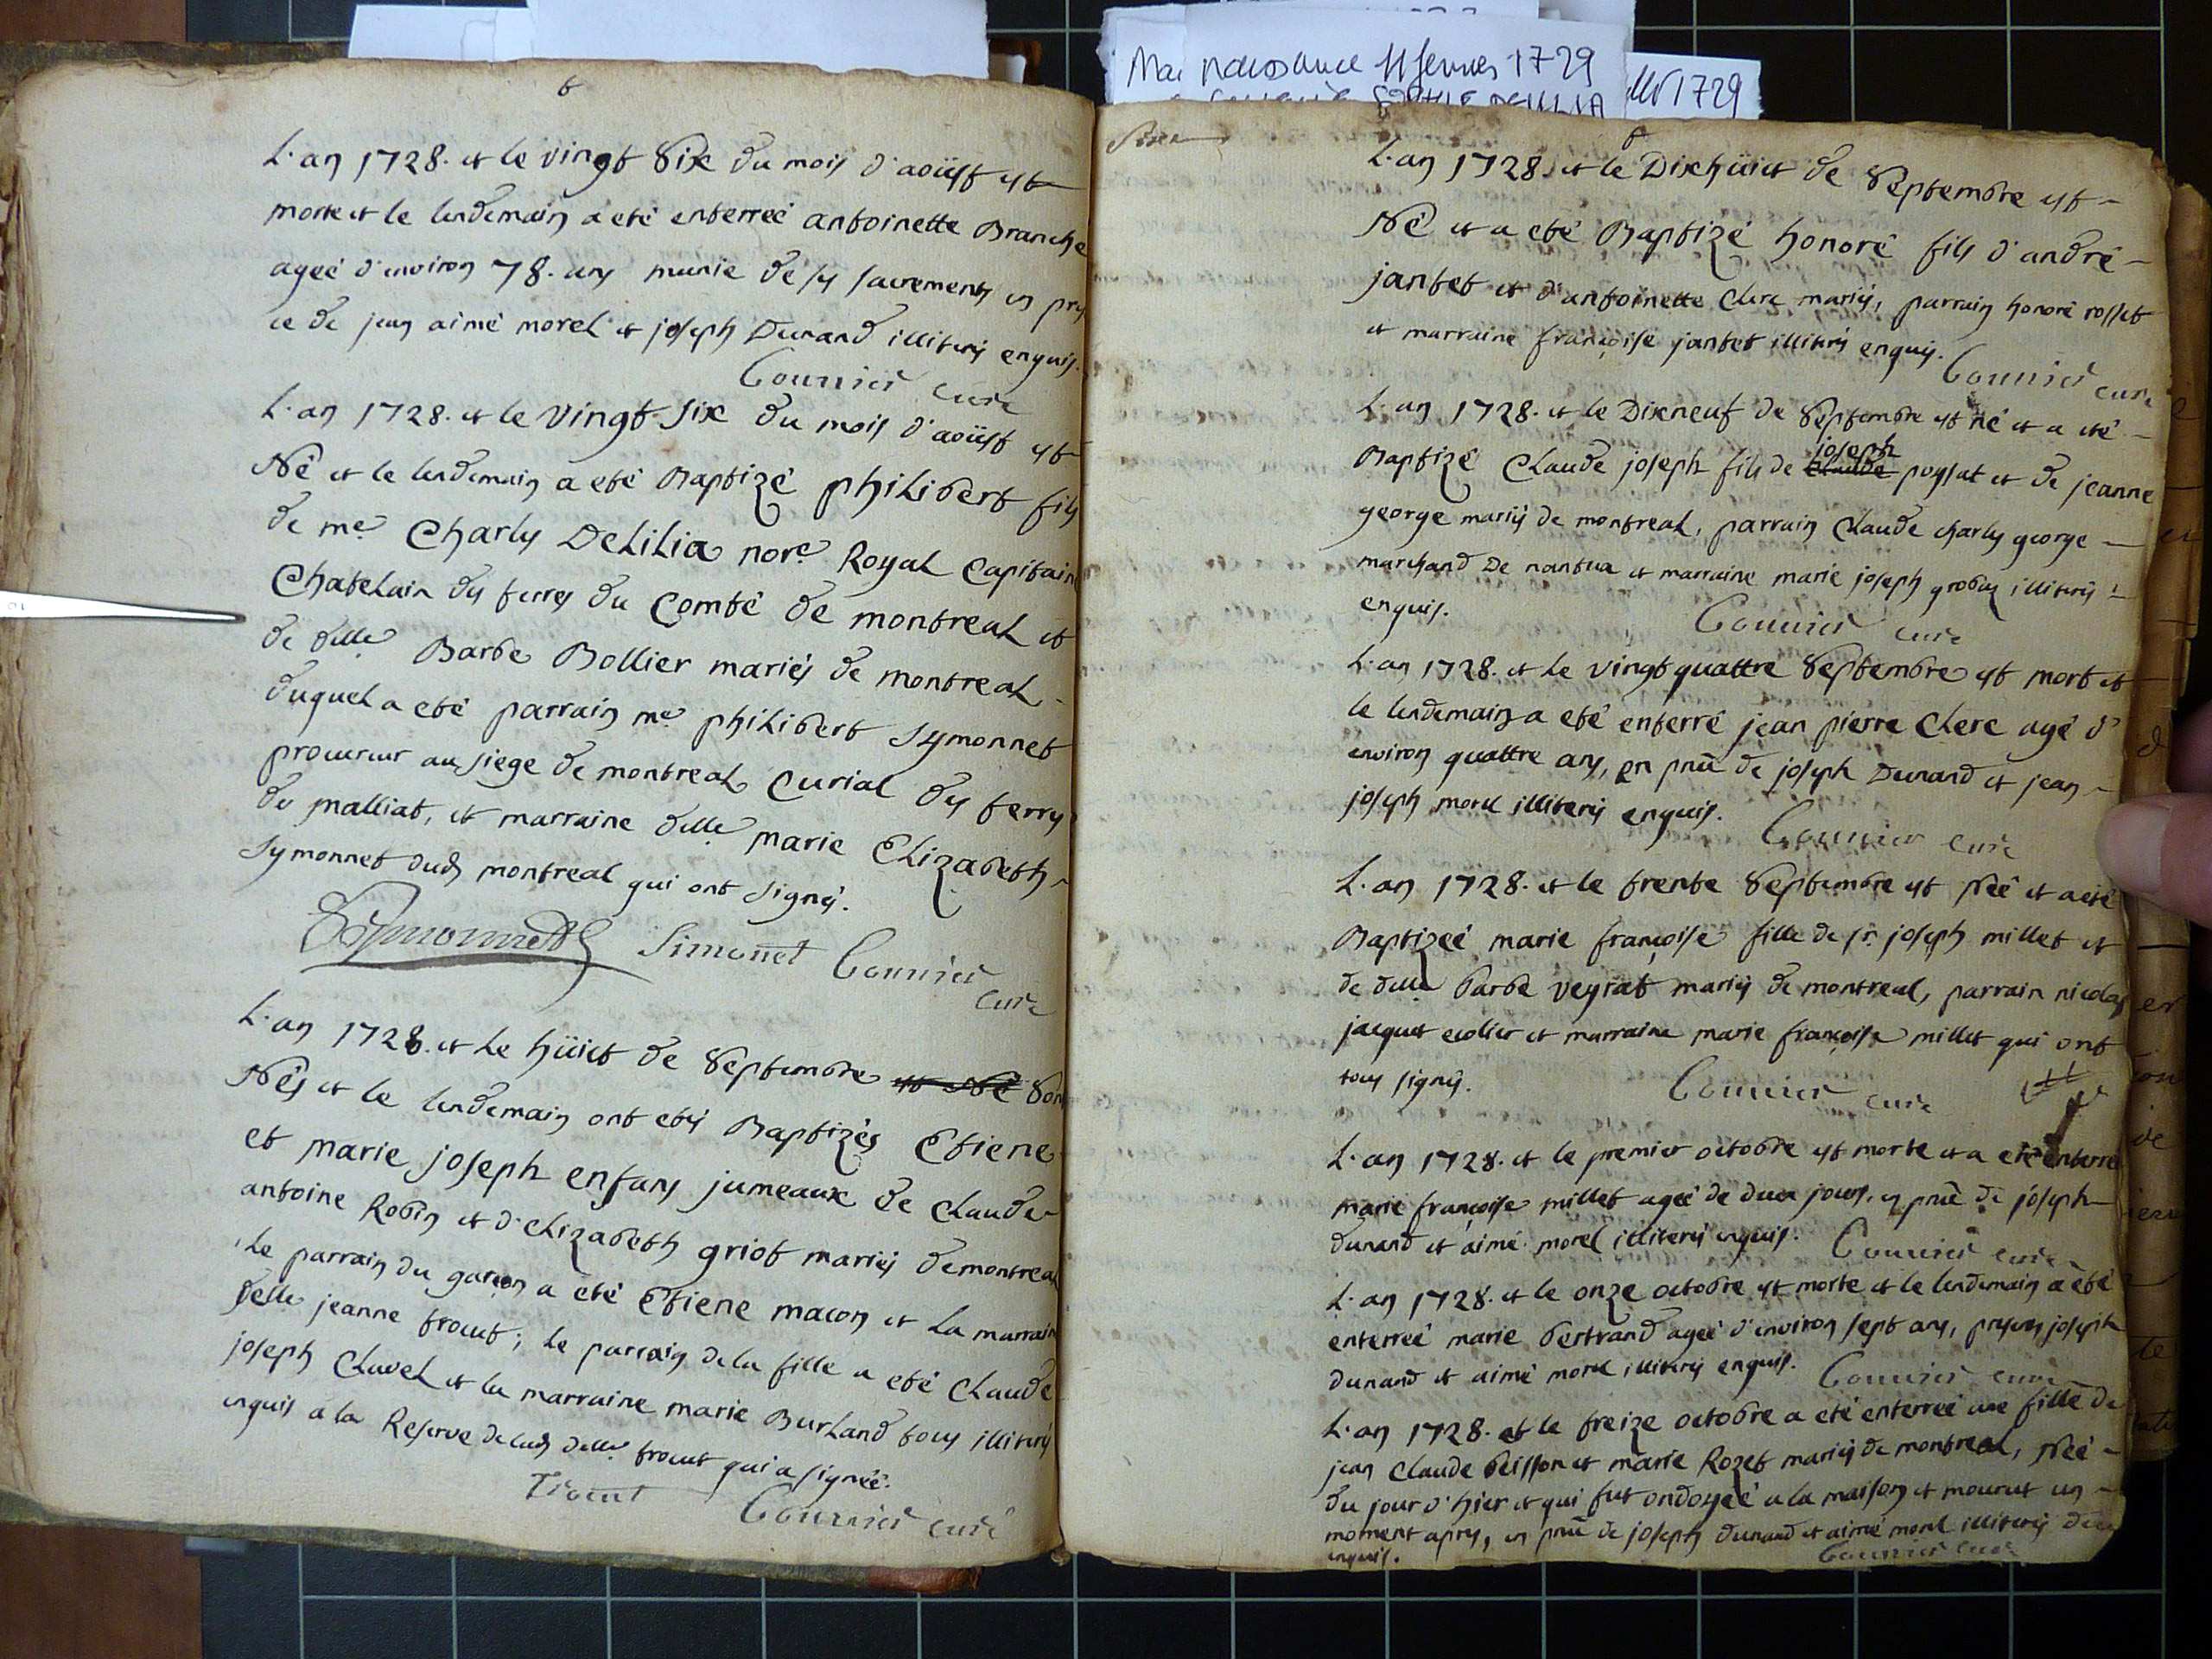 Mai naissance 11 fevrier 1729
1729
L'an 1728. et le vingt Six du mois d'aoüst est
morte et le lendemain a eté enterreé antoinette Branche
ageé d'environ 78. ans munie de ses sacrements en presen
ce de jean aimé morel et joseph Dunand illiterés enquis.
Cournier curé
L'an 1728. et le vingt Six du mois d'aoüst est
Né et le lendemain a eté Baptizé philibert fils
de me Charles DeLiLia nore Royal Capitaine
Chatelain des terres du Comté de montreal et
de delle Barbe Bollier mariés de montreal
duquel a eté parrain me philibert Symonnet
procureur au siege de montreal Curial des terres
de malliat, et marraine delle marie Elizabeth
Symonnet dud montreal qui ont signés.
Symonnet Simonet Cournier
curé
L'an 1728. et le hüict de Septembre est Né Sont
Nés et le lendemain ont etés Baptizés Etiene
et marie joseph enfans jumeaux de Claude
antoine Robin et d'Elizabeth griot mariés de montreal
, Le parrain du garçon a eté Etiene macon et la marraine
delle jeanne trocut; le parrain de la fille a eté Claude
joseph Clavel et la marraine marie Burland tous illiterés
enquis a la Reserve de lad delle trocut qui a signeé.
Trocut Cournier curé
L'an 1728. et le Dixhüict de Septembre est
Né et a eté Baptizé honoré fils d'andré
jantet et d'antoinette Clerc mariés, parrain honoré rosset
et marraine françoise jantet illiterés enquis.
Cournier curé
L'an 1728. et le Dixneuf de Septembre est né et a eté
joseph
Baptizé Claude joseph fils de Claude puysat et de jeanne
george mariés de montreal, parrain Claude charles george
marchand De nantua et marraine marie joseph grobas illiterés
enquis. Cournier curé
L'an 1728. et Le vingt quattre Septembre est mort et
le lendemain a eté enterré jean pierre Clerc agé d'
environ quattre ans, en pnce de joseph Dunand et jean
joseph morel illiterés enquis. Cournier curé
L'an 1728. et le trente Septembre est Neé et a eté
Baptizeé marie françoise fille de sr. joseph millet et
de delle barbe veyrat mariés de montreal, parrain nicolas
jacquet ecolier et marraine marie françoise millet qui ont
tous signés. Cournier curé
L'an 1728. et le premier octobre est morte et a eté enterreé
marie françoise millet ageé de deux jours, en pnce de joseph
dunand et aimé morel illiterés enquis. Cournier curé
L'an 1728. et le onze octobre est morte et le lendemain a eté
enterreé marie bertrand ageé d'environ sept ans, presens joseph
dunand et aimé morel illiterés enquis. Cournier curé
L'an 1728. et le treize octobre a eté enterreé une fille de
jean Claude Peisson et marie Rozet mariés de montreal, Neé
du jour d'hier et qui fut ondoyeé a la maison et mourut un
moment apres, en pnce de joseph dunand et aimé morel illiterés
enquis. Cournier curé